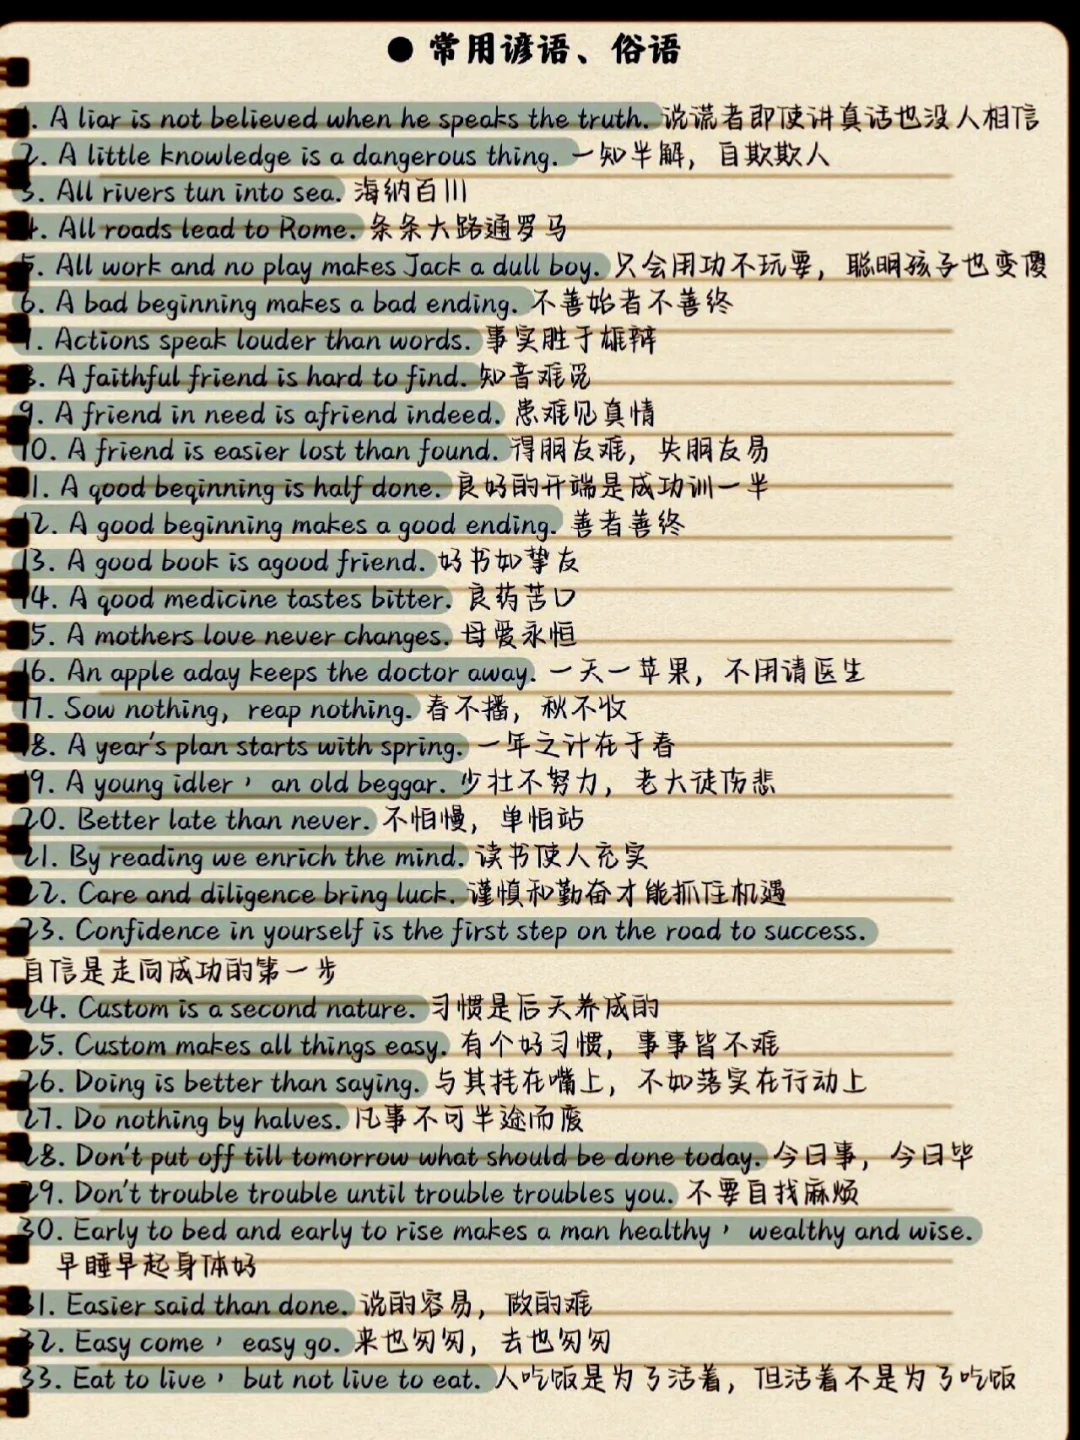 ● 常用谚语、俗语
1. A liar is not believed when he speaks the truth. 说谎者即使讲真话也没人相信
2. A little knowledge is a dangerous thing. 一知半解，自欺欺人
3. All rivers tun into sea. 海纳百川
4. All roads lead to Rome. 条条大路通罗马
5. All work and no play makes Jack a dull boy. 只会用功不玩耍，聪明孩子也变傻
6. A bad beginning makes a bad ending. 不善始者不善终
7. Actions speak louder than words. 事实胜于雄辩
8. A faithful friend is hard to find. 知音难觅
9. A friend in need is afriend indeed. 患难见真情
10. A friend is easier lost than found. 得朋友难，失朋友易
11. A good beginning is half done. 良好的开端是成功训一半
12. A good beginning makes a good ending. 善者善终
13. A good book is agood friend. 好书如挚友
14. A good medicine tastes bitter. 良药苦口
15. A mothers love never changes. 母爱永恒
16. An apple aday keeps the doctor away. 一天一苹果，不用请医生
17. Sow nothing, reap nothing. 春不播，秋不收
18. A year's plan starts with spring. 一年之计在于春
19. A young idler， an old beggar. 少壮不努力，老大徒伤悲
20. Better late than never. 不怕慢，单怕站
21. By reading we enrich the mind. 读书使人充实
22. Care and diligence bring luck. 谨慎和勤奋才能抓住机遇
23. Confidence in yourself is the first step on the road to success.
自信是走向成功的第一步
24. Custom is a second nature. 习惯是后天养成的
25. Custom makes all things easy. 有个好习惯，事事皆不难
26. Doing is better than saying. 与其挂在嘴上，不如落实在行动上
27. Do nothing by halves. 凡事不可半途而废
28. Don't put off till tomorrow what should be done today. 今日事，今日毕
29. Don't trouble trouble until trouble troubles you. 不要自找麻烦
30. Early to bed and early to rise makes a man healthy， wealthy and wise.
早睡早起身体好
31. Easier said than done. 说的容易，做的难
32. Easy come， easy go. 来也匆匆，去也匆匆
33. Eat to live， but not live to eat. 人吃饭是为了活着，但活着不是为了吃饭